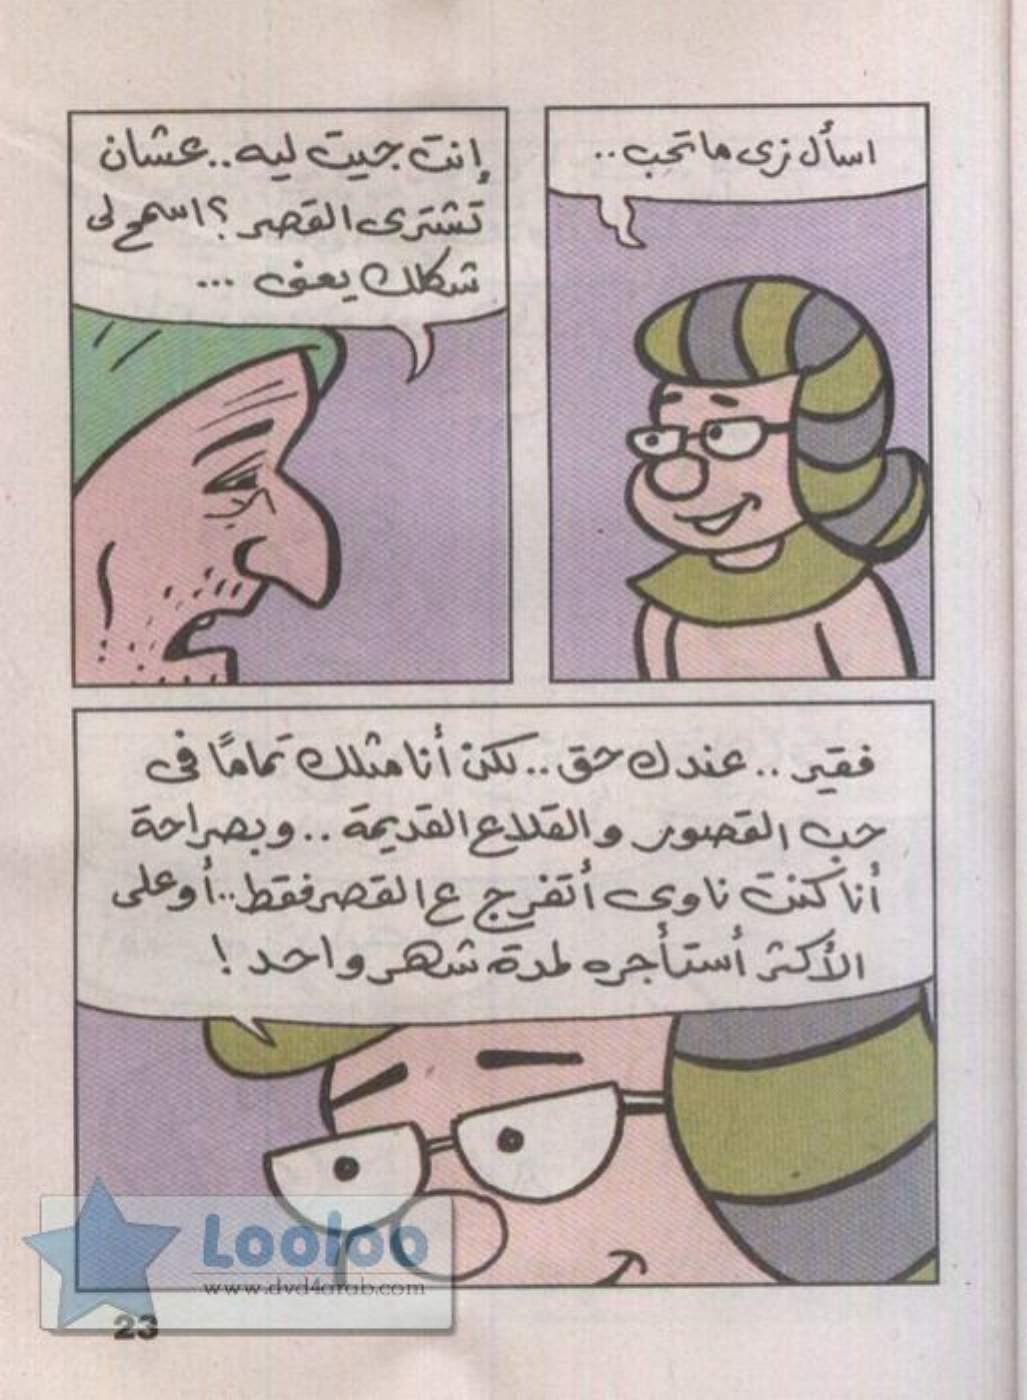 اسأل زى ما تحب..
إنت جيت ليه..عشان
تشترى القصر؟ اسمح لى
شكلك يعنى ...
فقير .. عندك حق .. لكن أنا مثلك تمامًا فى
حب القصور والقلاع القديمة .. وبصراحة
أنا كنت ناوى أتفرج ع القصر فقط..أو على
الأكثر أستأجره لمدة شهر واحد !
Looloo
www.dvd4arab.com
23